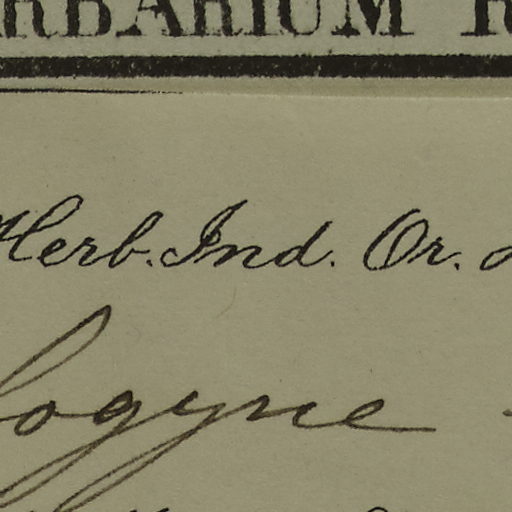 RBARIUM R
Herb. Ind. Or.
logyne